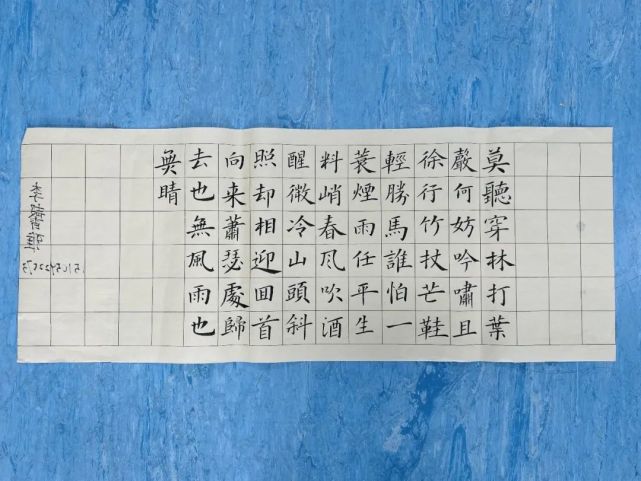 莫聽穿林打葉
嚴何妨吟嘯且
徐行竹杖芒鞋
輕勝馬誰怕一
蓑煙雨任平生
料峭春風吹酒
醒微冷山頭斜
照却相迎回首
向来蕭瑟處歸
去也無風雨也
無晴